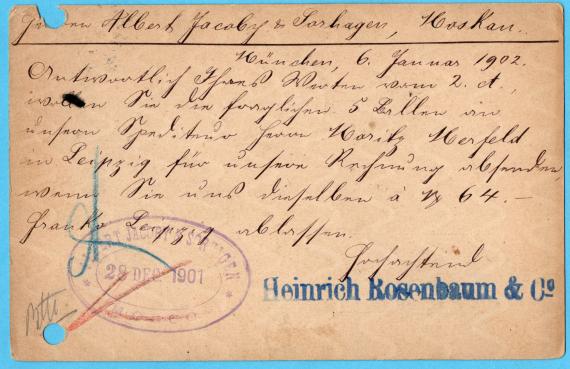 Herren Albert Jacoby & Sarhagen, Moskau.
München, 6. Januar 1902.
Antwortlich Ihres Werten vom 2. ct.
wollen Sie die fraglichen 5 Ballen an
unsern Spediteur Herrn Moritz Merfeld
in Leipzig für unsere Rechnung absenden,
wenn Sie uns dieselben à 64.–
franko Leipzig ablassen.
Hochachtend
Heinrich Rosenbaum & Co
28 DEC. 1901